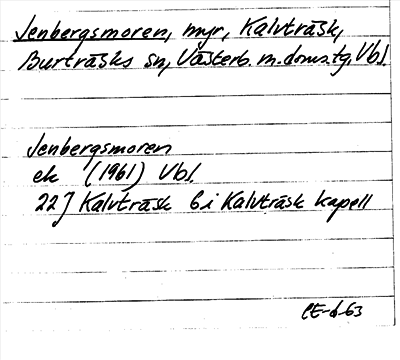 Jenbergsmoren, myr, Kalvträsk,
Burträsks sn, Västerb. m. doms.tg, Vbl.
Jenbergsmoren
ek (1961) Vbl.
22J Kalvträsk 6i Kalvträsk kapell
CE-d-63